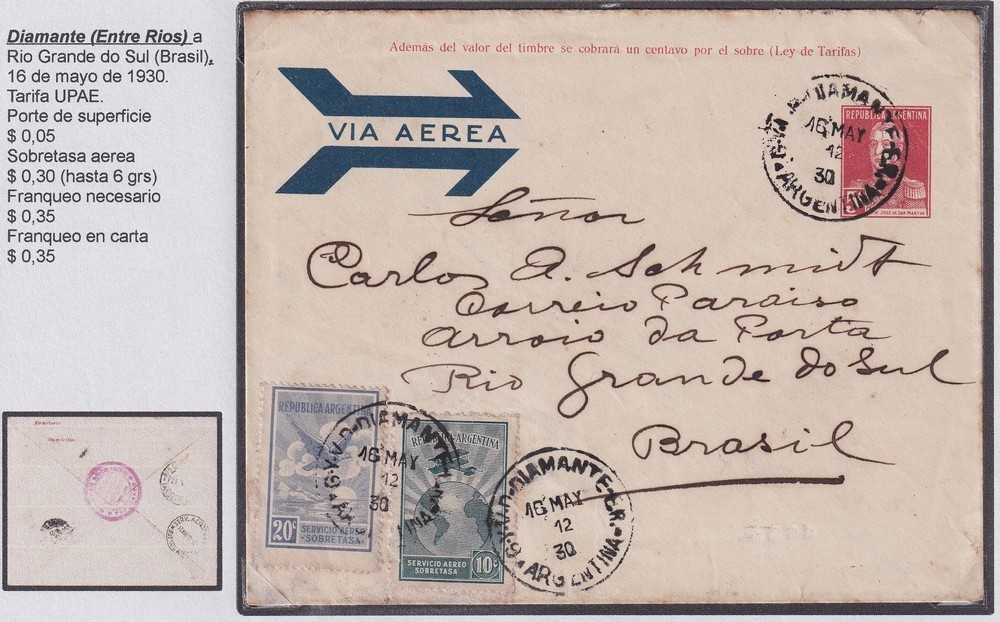 Diamante (Entre Rios) a
Rio Grande do Sul (Brasil),
16 de mayo de 1930.
Tarifa UPAE.
Porte de superficie
$ 0,05
Sobretasa aerea
$ 0,30 (hasta 6 grs)
Franqueo necesario
$ 0,35
Franqueo en carta
$ 0,35
Además del valor del timbre se cobrará un centavo por el sobre (Ley de Tarifas)
VIA AEREA
REPUBLICA ARGENTINA
JOSÉ DE SAN MARTIN
DIAMANTE-E.R.
16 MAY
12
30
ARGENTINA
Señor
Carlos A. Schmidt
Correio Paraiso
Arroio da Porta
Rio Grande do Sul
Brasil
REPUBLICA ARGENTINA
20c
SERVICIO AEREO
SOBRETASA
DIAMANTE
16 MAY
12
30
REPUBLICA ARGENTINA
SERVICIO AEREO
SOBRETASA
10c
DIAMANTE-E.R.
16 MAY
12
30
ARGENTINA